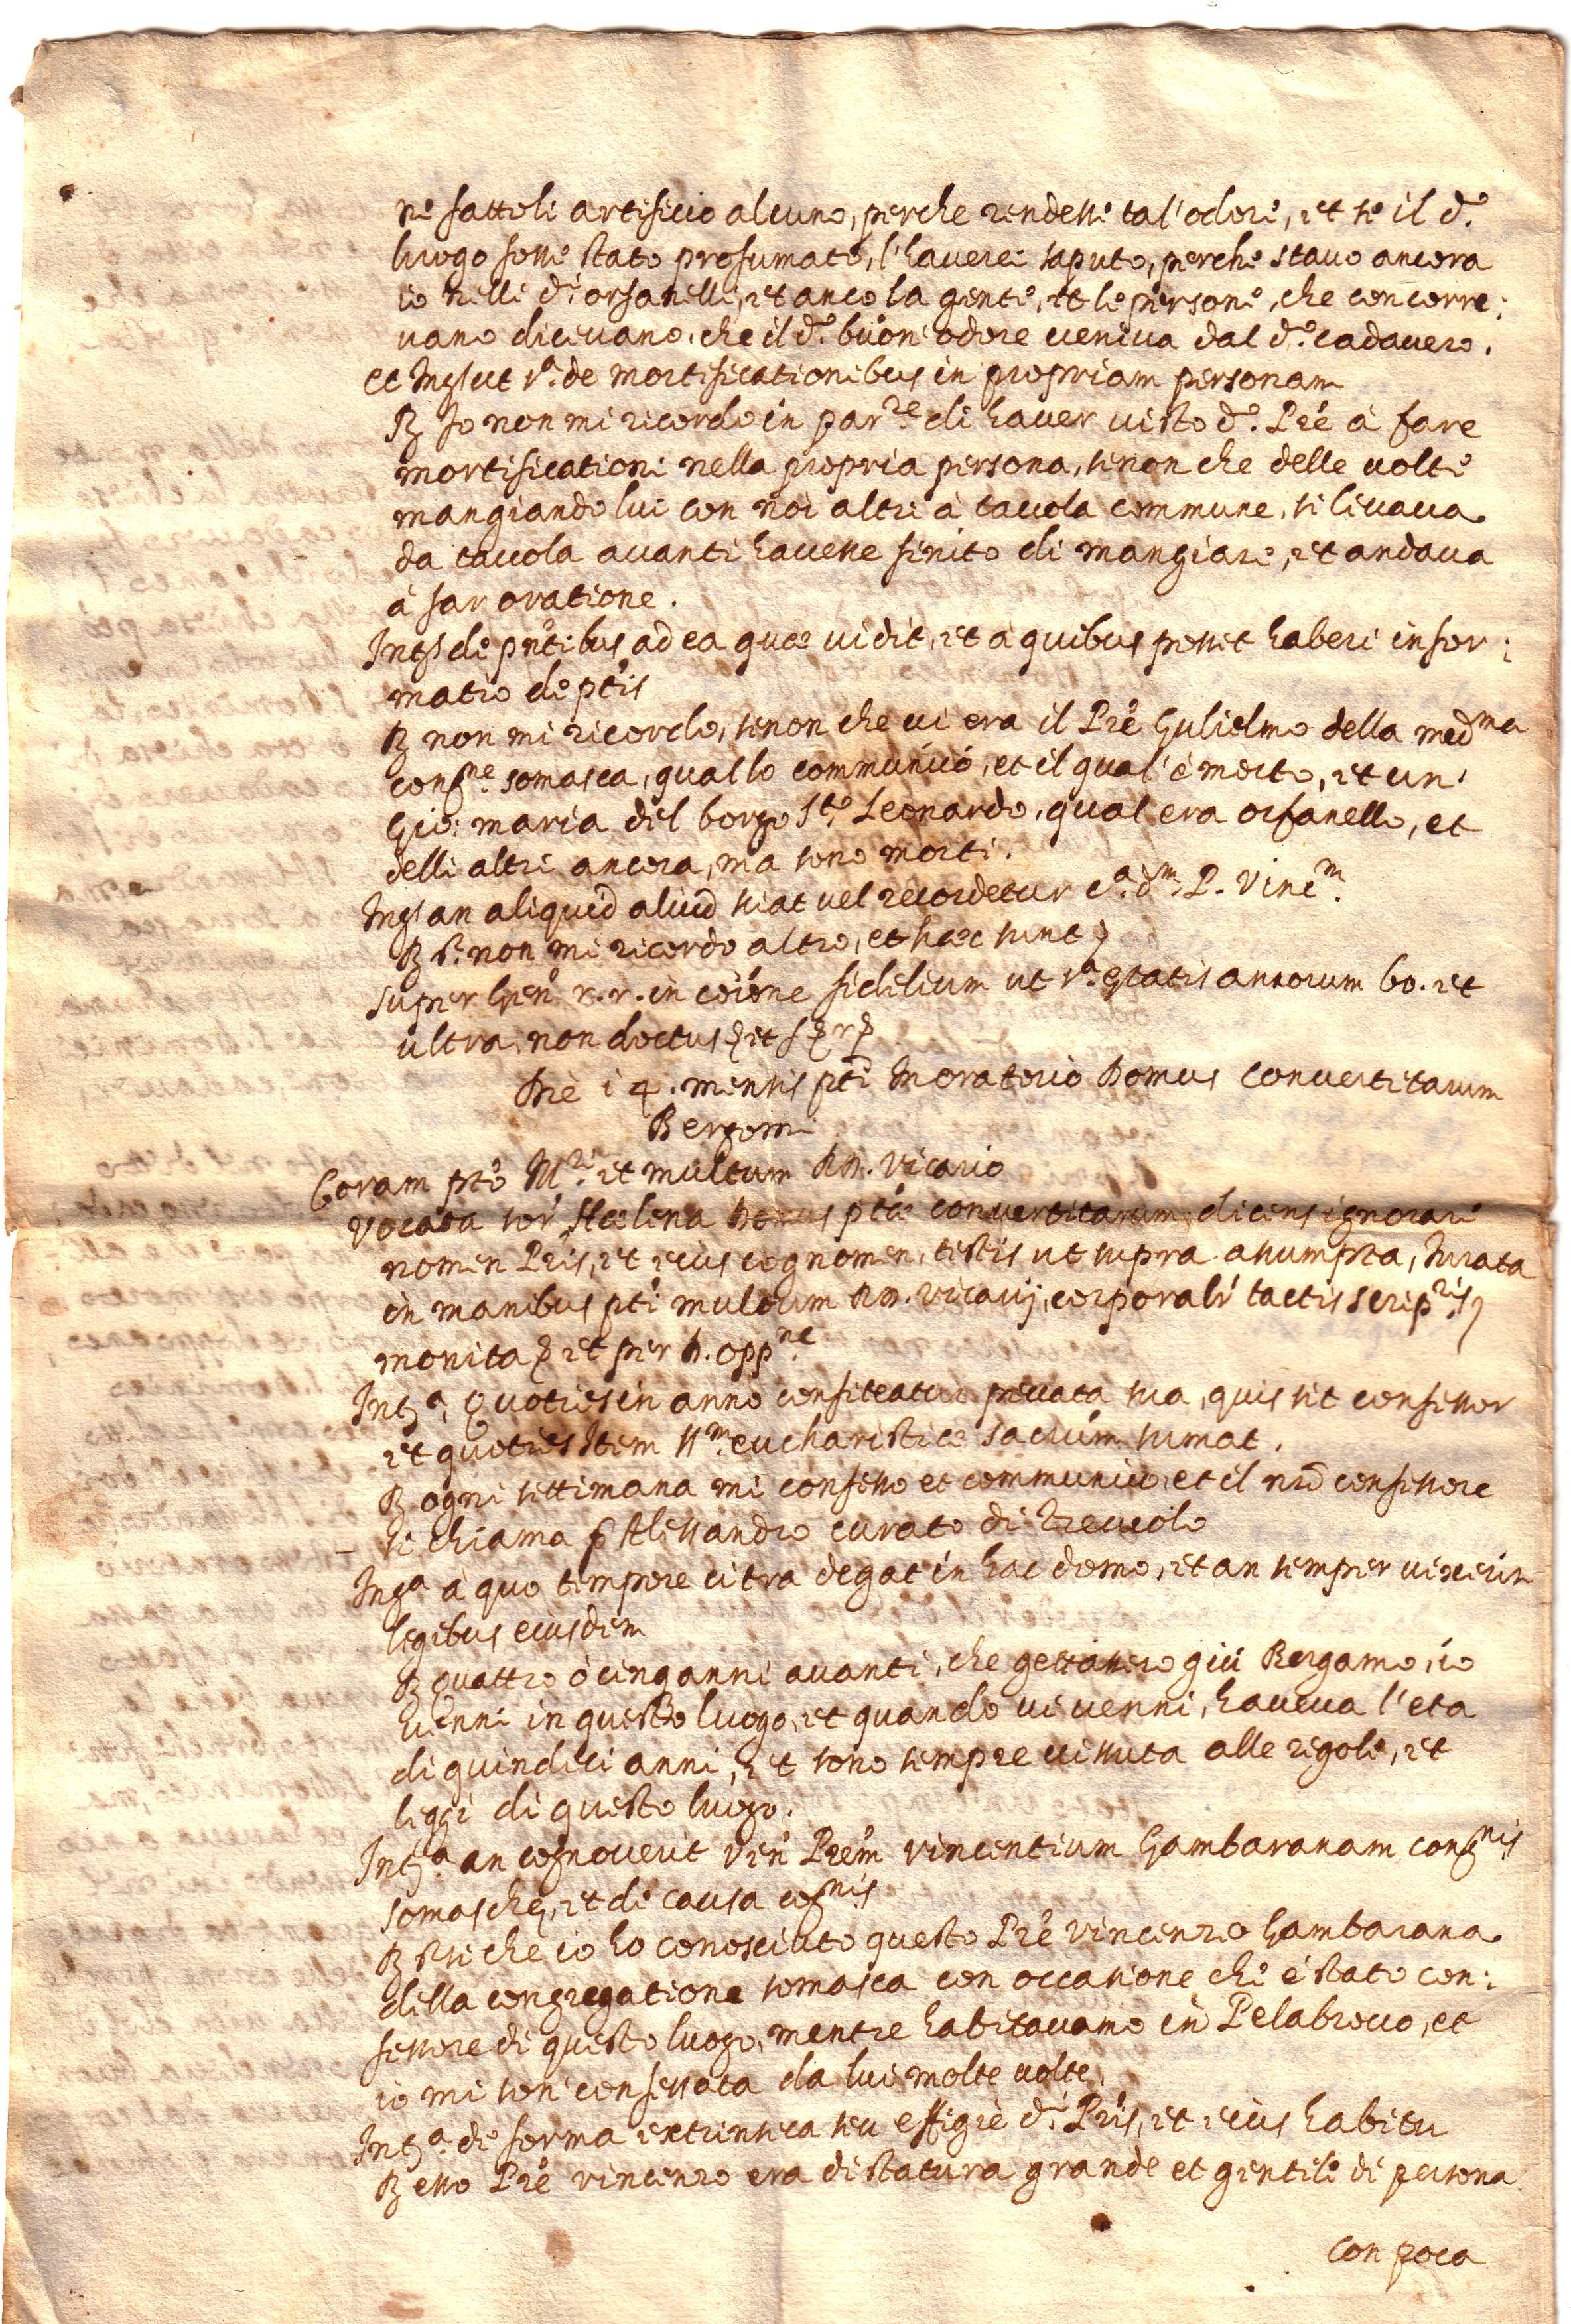 ne fattoli artificio alcuno, perche rendesse tal'odore, et se il d.º
luogo fosse stato profumato, l'haverei saputo, perche stavo ancora
io nelli d.i orfanelli, et anco la gente, et le persone, che concorre:
vano dicevano, che il d.º buon odore veniva dal d.º cadavero.
et Ings ut s.ª de mortificationibus in propriam personam
R Io non mi ricordo in par.re di haver visto d.º Pre à fare
mortificationi nella propria persona, senon che delle volte
mangiando lui con noi altri à tavola commune, si livava
da tavola avanti havesse finito di mangiare, et andava
à far oratione.
Intgs de pntibus ad ea quæ vidit, et a quibus posset haberi infor:
matio de ptis
R non mi ricordo, senon che vi era il Pre Gulielmo della med.ma
cong.ne somasca, qual lo communicò, et il qual'è morto, et un'
Gio: maria del borgo S.to Leonardo, qual era orfanello, et
delli altri ancora, ma sono morti.
Ings an aliquid aliud sciat vel recordetur c.ª d.m P. Vinc.m
R non mi ricordo altro, et hæc sunt
super r. r. in coione fidelium ut s.ª ętatis annorum 60. et
ultra, non doctus et
Die 14. mensis pti In oratorio Domus convertitarum
Bergomi
Coram pto M.ri et multum RR. Vicario
Vocata sor Hælena ptæ convertitarum, dicens ignorare
nomen Pris, et eius cognomen, testis ut supra assumpta, Iurata
in manibus pti multum RR. Vicarij, corporalr tactis scrip.ris
monita et per d. opp.ne
Intg.ª Quoties in anno confiteatur peccata sua, quis sit confessor
et quoties Item ss.m eucharisticæ sacrum sumat.
R ogni settimana mi confesso et communico, et il nro confessore
si chiama p Alessandro curato di Treviolo
Ing.ª à quo tempore citra degat in hac domo, et an semper vixerit
legibus eiusdem
R Quattro ò cinq anni avanti, che gettassero giù Bergamo, io
venni in questo luogo, et quando vi venni, haveva l'eta
di quindeci anni, et sono sempre vissuta alle regole, et
leggi di questo luogo.
Intg.ª an cognoverit Ven Prem Vincentium Gambaranam cong.nis
somaschę, et de causa cog.nis
R che io ho conosciuto questo Pre Vincenzo Gambarana
della congregatione somasca con occasione che è stato con:
fessore di questo luogo, mentre habitavamo in Pelabrocco, et
io mi son confessata da lui molte volte.
Intg.ª de forma extrinseca seu effigie d.i Pris, et eius habitu
R esso Pre Vincenzo era di statura grande et gentile di persona
con poca